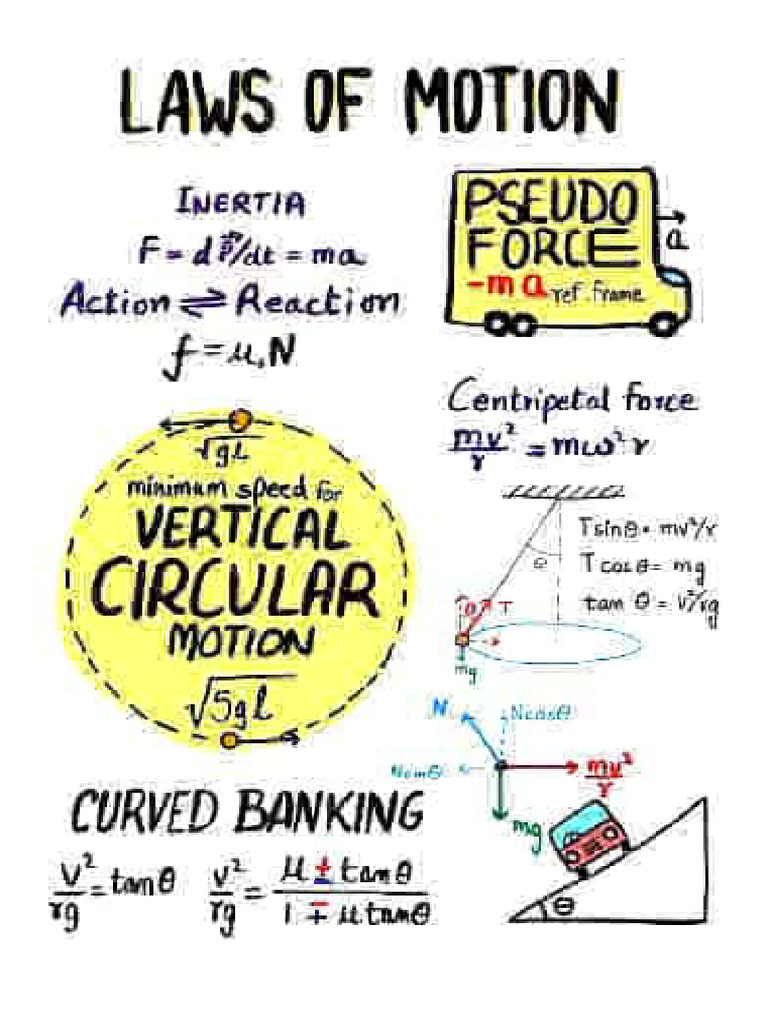 LAWS OF MOTION
INERTIA
F = dp⃗/dt = ma
Action ⇌ Reaction
f = μ,N
PSEUDO
FORCE
-ma ref. frame
a
Centripetal force
mv²/r = mω²r
√gL
minimum speed for
VERTICAL
CIRCULAR
MOTION
√5gl
Tsinθ = mv²/r
T cosθ = mg
tan θ = v²/rg
θ
θ T
mg
N Ncosθ
mv²/r
mg
θ
CURVED BANKING
v²/rg = tanθ
v²/rg = μ ± tanθ / 1 ∓ μtanθ